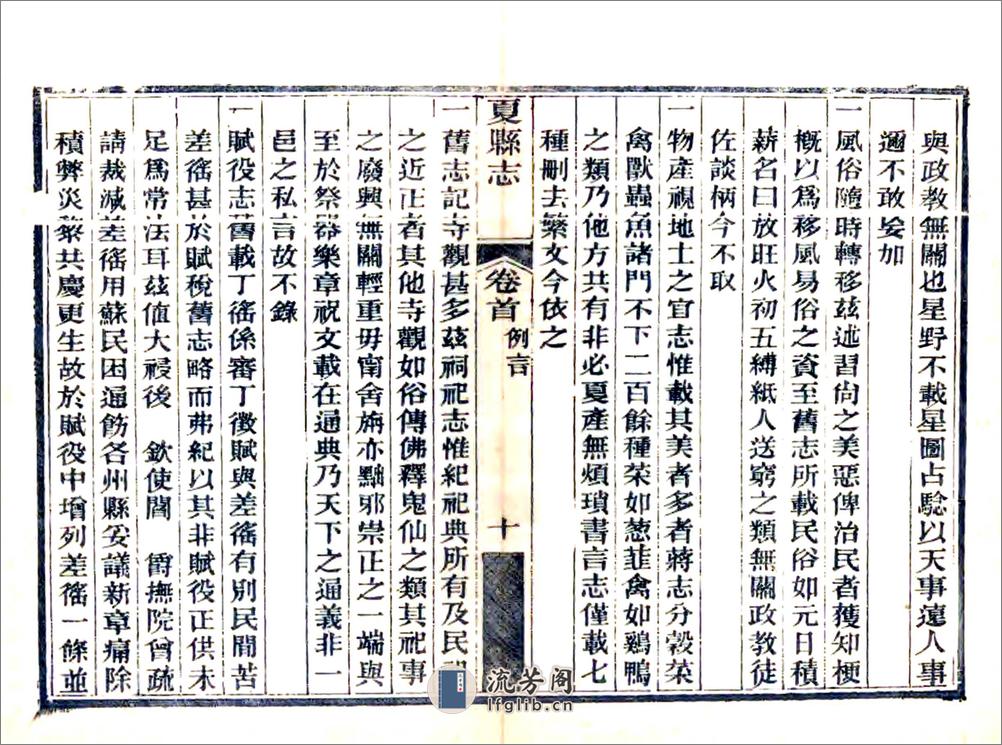 與政教無關也星野不載星圖占驗以天事遠人事
邇不敢妄加
一風俗隨時轉移茲述習尙之美惡俾治民者獲知梗
概以爲移風易俗之資至舊志所載民俗如元日積
薪名曰放旺火初五縛紙人送窮之類無關政教徒
佐談柄今不取
一物產視地土之宜志惟載其美者多者蔣志分穀菜
禽獸蟲魚諸門不下二百餘種菜如葱韮禽如鷄鴨
之類乃他方共有非必夏產無煩瑣書言志僅載七
種刪去繁文今依之
夏縣志
卷首
例言
十
一舊志記寺觀甚多茲祠祀志惟紀祀典所有及民
之近正者其他寺觀如俗傳佛釋鬼仙之類其祀事
之廢興無關輕重毋甯舍旃亦黜邪崇正之一端與
至於祭器樂章祝文載在通典乃天下之通義非一
邑之私言故不錄
一賦役志舊載丁徭係審丁徵賦與差徭有別民間苦
差徭甚於賦稅舊志略而弗紀以其非賦役正供未
足爲常法耳茲值大祲後 欽使閻 爵撫院曾疏
請裁減差徭用蘇民困通飭各州縣妥議新章痛除
積弊災黎共慶更生故於賦役中增列差徭一條並
流芳阁
lfglib.cn